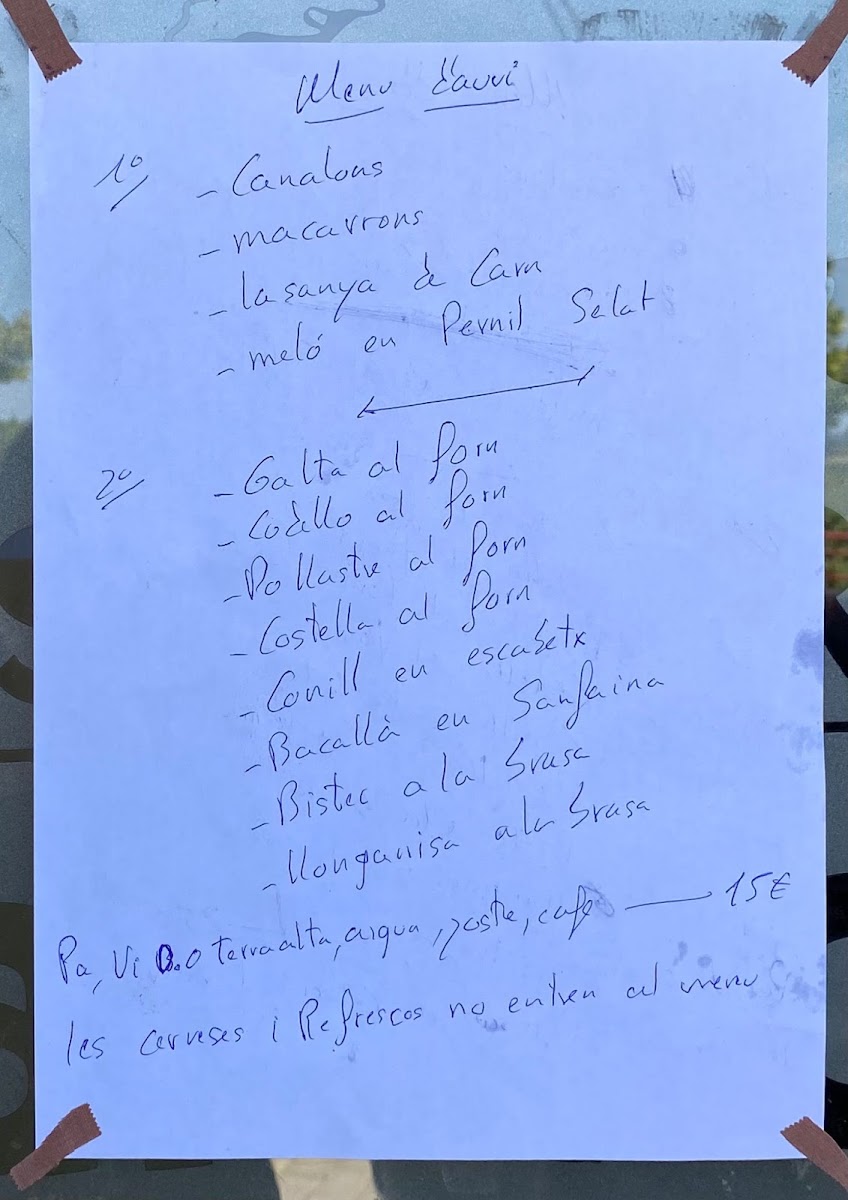 Menu d'avui
1º
- Canalons
- macarrons
- lasanya de Carn
- meló en Pernil Salat
2º
- Galta al forn
- Codillo al forn
- Pollastre al forn
- Costella al forn
- Conill en escabetx
- Bacallà en Sanfaina
- Bistec a la brasa
- llonganisa a la brasa
Pa, Vi D.O terra alta, aigua, postre, cafe — 15€
les cerveses i Refrescos no entren al menu